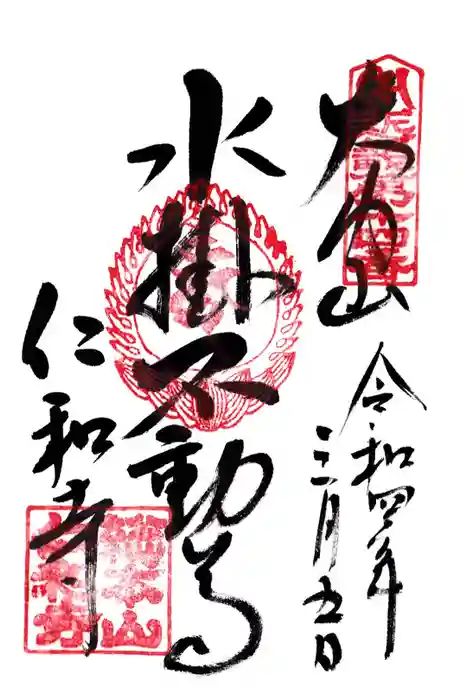 大内山
令和四年
三月五日
水掛不動尊
仁和寺